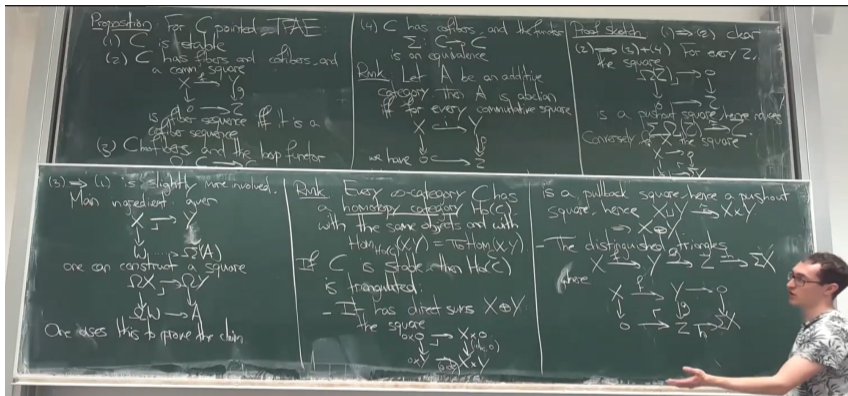 Proposition: For C pointed TFAE:
(1) C is stable
(2) C has fibers and cofibers, and
a comm. square
X →f Y
↓ ↓g
0 → Z
is a fiber sequence iff it is a
cofiber sequence
(3) C has fibers and the loop functor
Ω: C → C
(4) C has cofibers, and the functor
Σ: C → C
is an equivalence
Rmk Let A be an additive
category then A is abelian
iff for every commutative square
X → Y
↓ ↓
0 → Z
we have
Proof sketch: (1) ⇒ (2) clear
(2) ⇒ (3)+(4) For every Z,
the square
ΩZ → 0
↓ ↓
0 → Z
is a pushout square, hence
ΣΩZ → Z.
Conversely the square
X → 0
(3) ⇒ (1) is slightly more involved.
Main ingredient: given
X → Y
↓ ↓
W → Ω(A)
one can construct a square
ΩX → ΩY
↓ ↓
ΩW → A
One uses this to prove the claim
Rmk Every ∞-category C has
a homotopy category Ho(C)
with the same objects and with
Hom_Ho(C)(X,Y) = π₀Hom(X,Y)
If C is stable then Ho(C)
is triangulated:
- It has direct sums X⊕Y
the square
0×0 → X×0
↓ ↓ (id,0)
0×Y → X×Y
is a pullback square, hence a pushout
square, hence X⊔Y ≃ X×Y
= X⊕Y
- The distinguished triangles
X →f Y →g Z →h ΣX
here
X →f Y → 0
↓ ↓g ↓
0 → Z →h ΣX